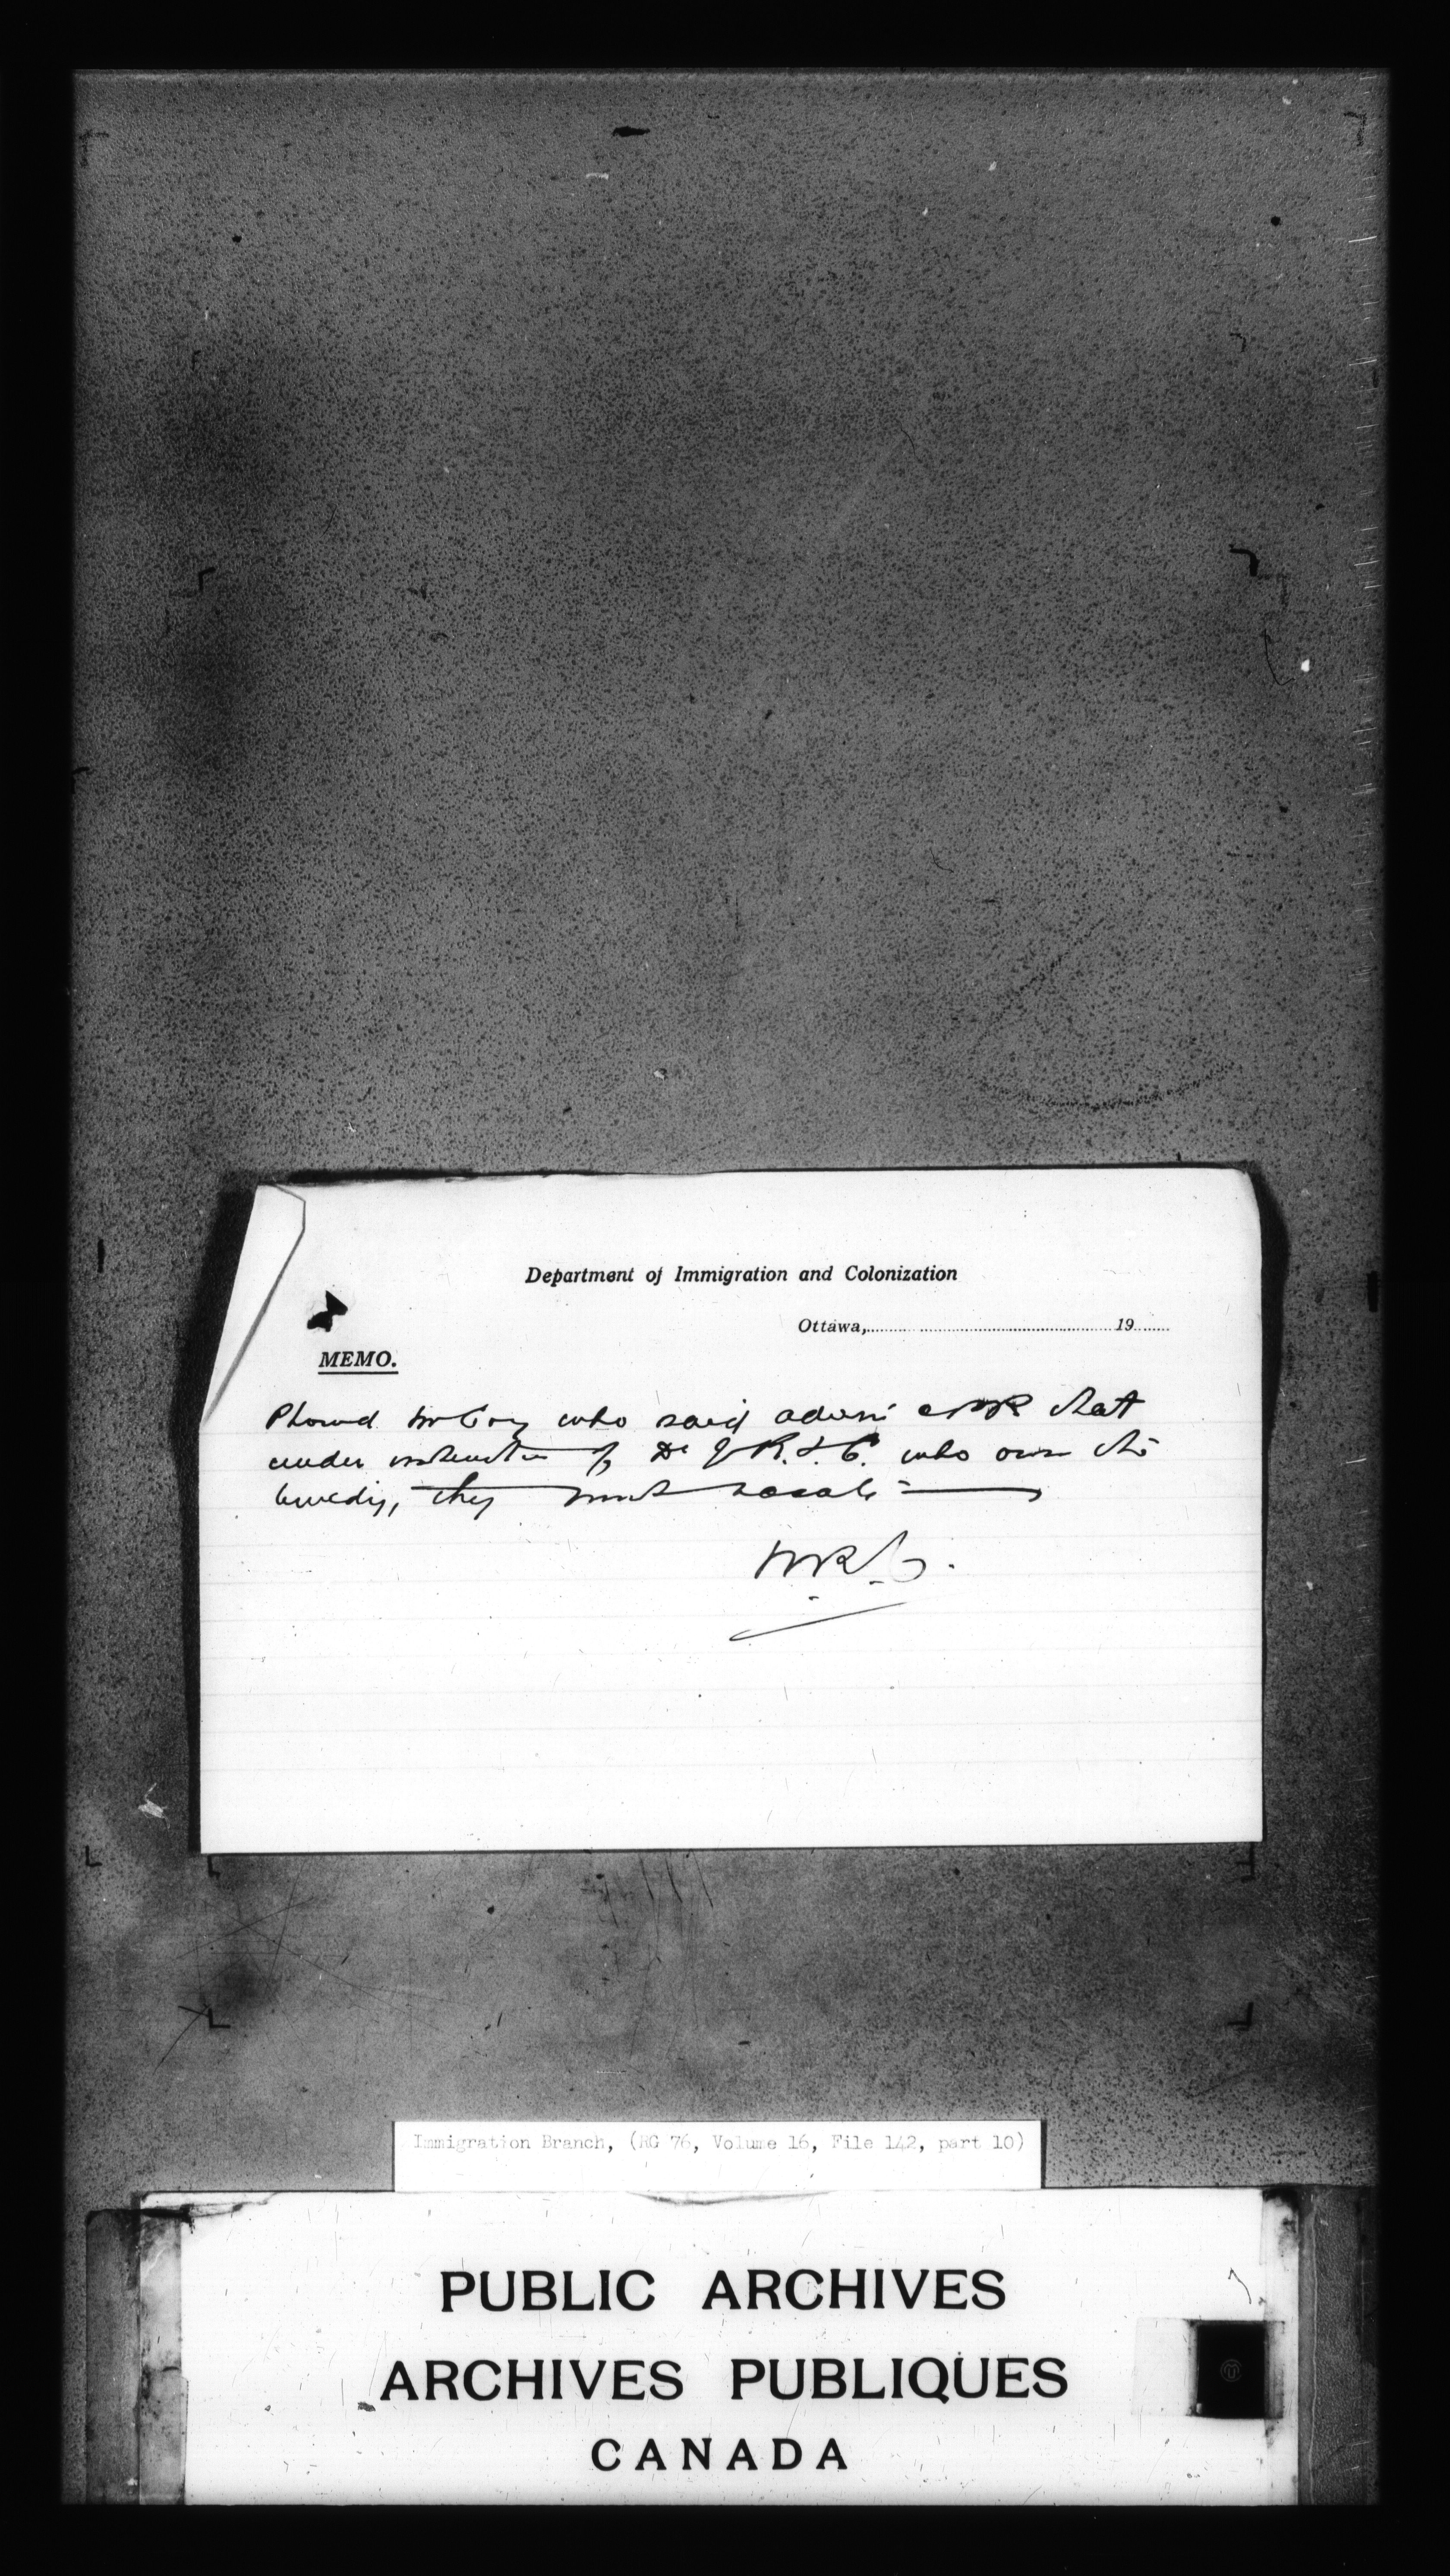 Department of Immigration and Colonization
Ottawa,.......... 19......
MEMO.
Phoned McCoy who said advise CNR that
under instruction of D of R. & C. who own the
they must vacate
Immigration Branch, (RG 76, Volume 16, File 142, part 10)
PUBLIC ARCHIVES
ARCHIVES PUBLIQUES
CANADA